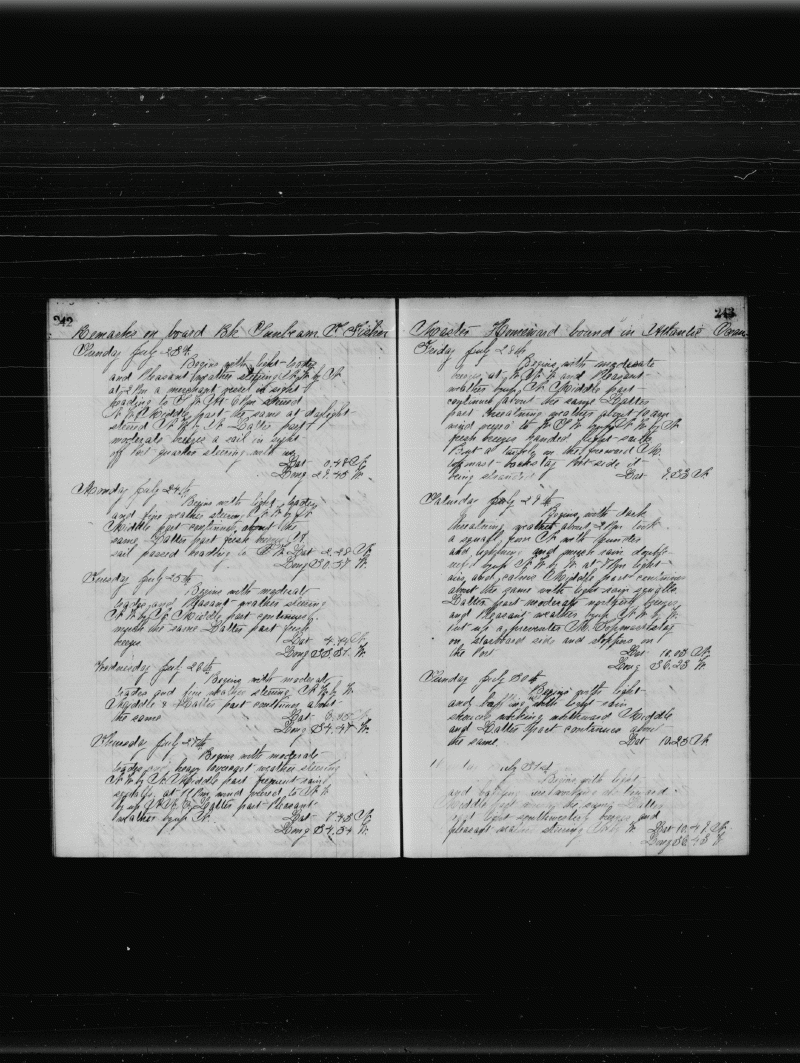 242
Remarks on board Bk Sunbeam T Fisher
Sunday July 23rd
Begins with light trades
and Pleasant weather steering N.W. by N.
at 2 Pm a merchant vessel in sight
heading to S.W. At 6 Pm steered
N.W. Middle part the same at daylight
steered N.W. by N. Latter part
moderate breeze a sail in sight
off lee quarter steering with us
Lat 0.48 N.
Long 29.45 W.
Monday July 24th
Begins with light trades
and fine weather steering N.W. by N.
Middle part continues about the
same. Latter part fresh breeze
sail passed heading to S.W. Lat 2.28 N.
Long 30.57 W.
Tuesday July 25th
Begins with moderate
trades and Pleasant weather steering
N.W. by N. Middle part continues
much the same Latter part fresh
breeze Lat 4.44 N.
Long 33.31 W.
Wednesday July 26th
Begins with moderate
trades and fine weather steering N.W. by W.
Middle & Latter part continues about
the same Lat 6.15
Long 34.47 W.
Thursday July 27th
Begins with moderate
trades and heavy overcast weather steering
N.W. by N. Middle part frequent rain
squalls, at 11 Pm wind veered to
by up Latter part Pleasant
weather by up N. Lat 7.43 N.
Long 34.34 W.
243
Master Homeward bound in Atlantic Ocean
Friday July 28th
Begins with moderate
breeze at and Pleasant
weather by up N. Middle part
continues about the same Latter
part threatening weather about 10 am
wind veered to by up N.W. by N.
fresh breeze handed light sails
Put a turnbuckle in the forward
topmast backstay Port side it
being stranded Lat 9.33 N.
Saturday July 29th
Begins with dark
threatening weather about 2 Pm took
a squall from N. with thunder
and lightning and much rain double
reef by up N.W. by W. at 7 Pm light
airs and calms Middle part continues
about the same with light rain squalls
Latter part moderate northerly breeze
and Pleasant weather by up N.W. by W.
Put up a preventer
on starboard side and stopper on
the Port Lat 10.03 N.
Long 36.23 W.
Sunday July 30th
Begins with light
and baffling with light rain
showers working northward Middle
and Latter part continues about
the same. Lat 10.25 N.
July 31st
Begins with light
and baffling
Middle part much the same Latter
part light southwesterly breeze and
pleasant steering N. by W. Lat 10.49 N.
Long 36.43 W.